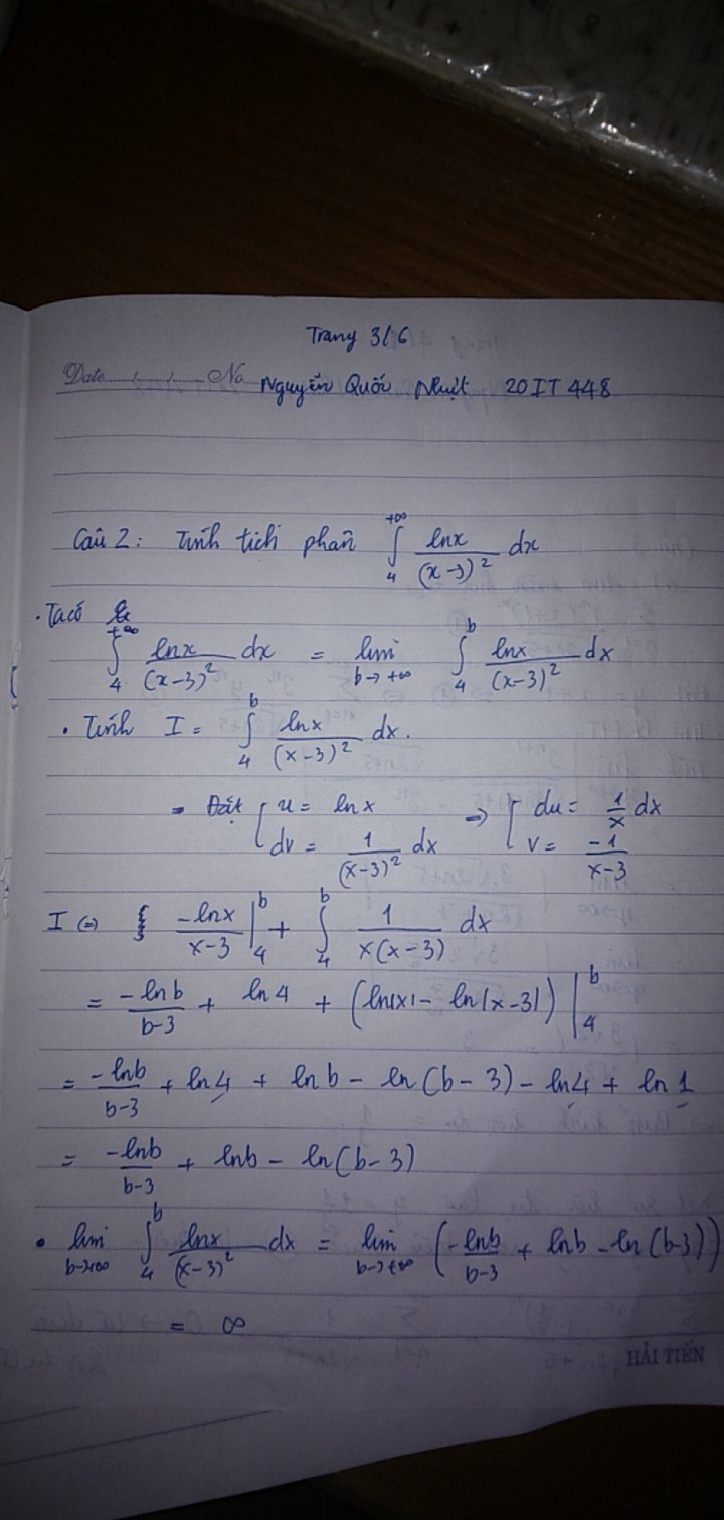 Trang 3/6
Date No
Nguyễn Quốc Nhựt 20IT448
Câu 2: Tính tích phân ∫₄^{+∞} lnx/(x-3)² dx
• Ta có
∫₄^{+∞} lnx/(x-3)² dx = lim_{b→+∞} ∫₄^b lnx/(x-3)² dx
• Tính I = ∫₄^b lnx/(x-3)² dx.
- Đặt { u = lnx ⇒ { du = 1/x dx
dv = 1/(x-3)² dx v = -1/(x-3)
I (=) -lnx/(x-3) |₄^b + ∫₄^b 1/(x(x-3)) dx
= -lnb/(b-3) + ln4 + (ln|x| - ln|x-3|) |₄^b
= -lnb/(b-3) + ln4 + lnb - ln(b-3) - ln4 + ln1
= -lnb/(b-3) + lnb - ln(b-3)
• lim_{b→+∞} ∫₄^b lnx/(x-3)² dx = lim_{b→+∞} (-lnb/(b-3) + lnb - ln(b-3))
= ∞
HẢI TIẾN